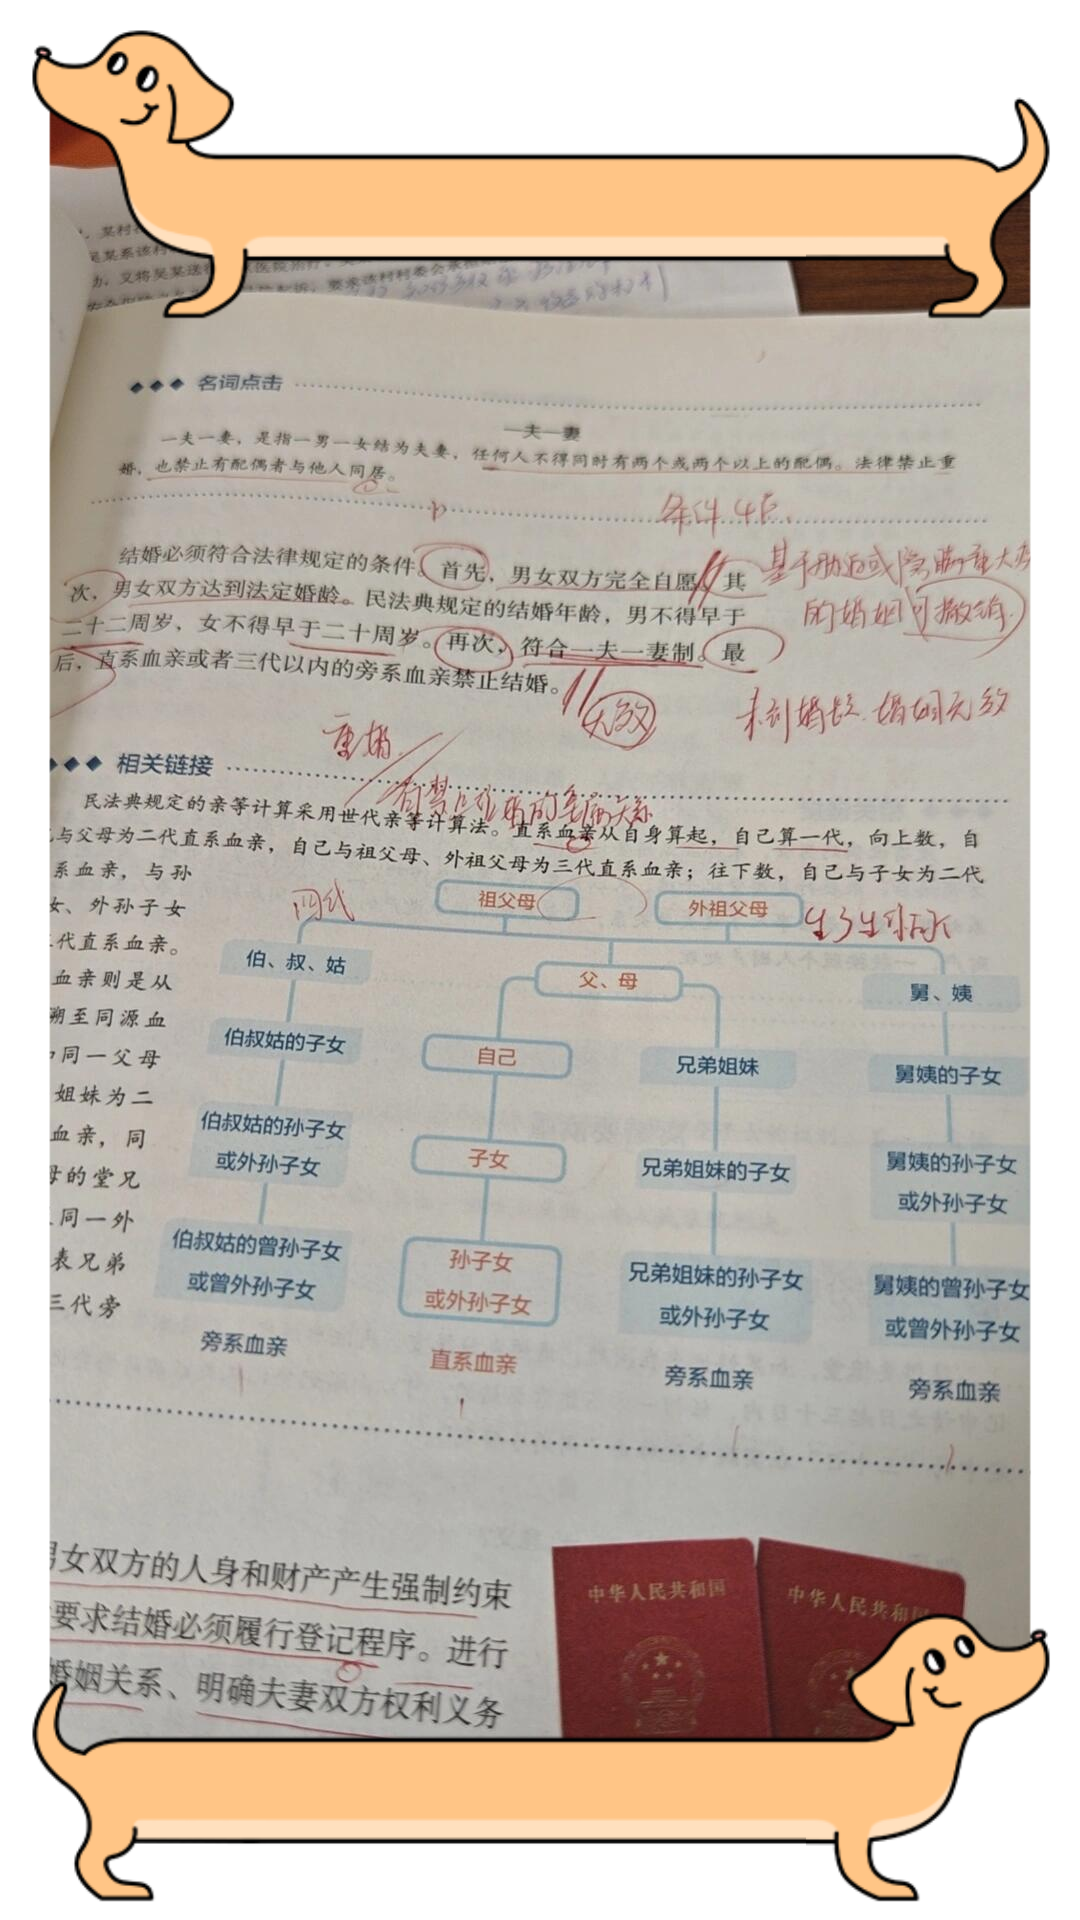 某村
吴某系该村
、又将吴某送
名词点击
一夫一妻
一夫一妻，是指一男一女结为夫妻，任何人不得同时有两个或两个以上的配偶。法律禁止重
婚，也禁止有配偶者与他人同居。
条件4点
结婚必须符合法律规定的条件。首先，男女双方完全自愿。其
次，男女双方达到法定婚龄。民法典规定的结婚年龄，男不得早于
二十二周岁，女不得早于二十周岁。再次，符合一夫一妻制。最
后，直系血亲或者三代以内的旁系血亲禁止结婚。
基于胁迫或隐瞒重大
的婚姻可撤销
无效
未到婚龄 婚姻无效
重婚
相关链接
有禁止结婚的亲属关系
民法典规定的亲等计算采用世代亲等计算法。直系血亲从自身算起，自己算一代，向上数，自
与父母为二代直系血亲，自己与祖父母、外祖父母为三代直系血亲；往下数，自己与子女为二代
系血亲，与孙
女、外孙子女
代直系血亲。
血亲则是从
溯至同源血
同一父母
姐妹为二
血亲，同
母的堂兄
同一外
表兄弟
三代旁
四代
祖父母
外祖父母
伯、叔、姑
父、母
舅、姨
伯叔姑的子女
自己
兄弟姐妹
舅姨的子女
伯叔姑的孙子女
或外孙子女
子女
兄弟姐妹的子女
舅姨的孙子女
或外孙子女
伯叔姑的曾孙子女
或曾外孙子女
孙子女
或外孙子女
兄弟姐妹的孙子女
或外孙子女
舅姨的曾孙子女
或曾外孙子女
旁系血亲
直系血亲
旁系血亲
旁系血亲
男女双方的人身和财产产生强制约束
要求结婚必须履行登记程序。进行
婚姻关系、明确夫妻双方权利义务
中华人民共和国
中华人民共和国